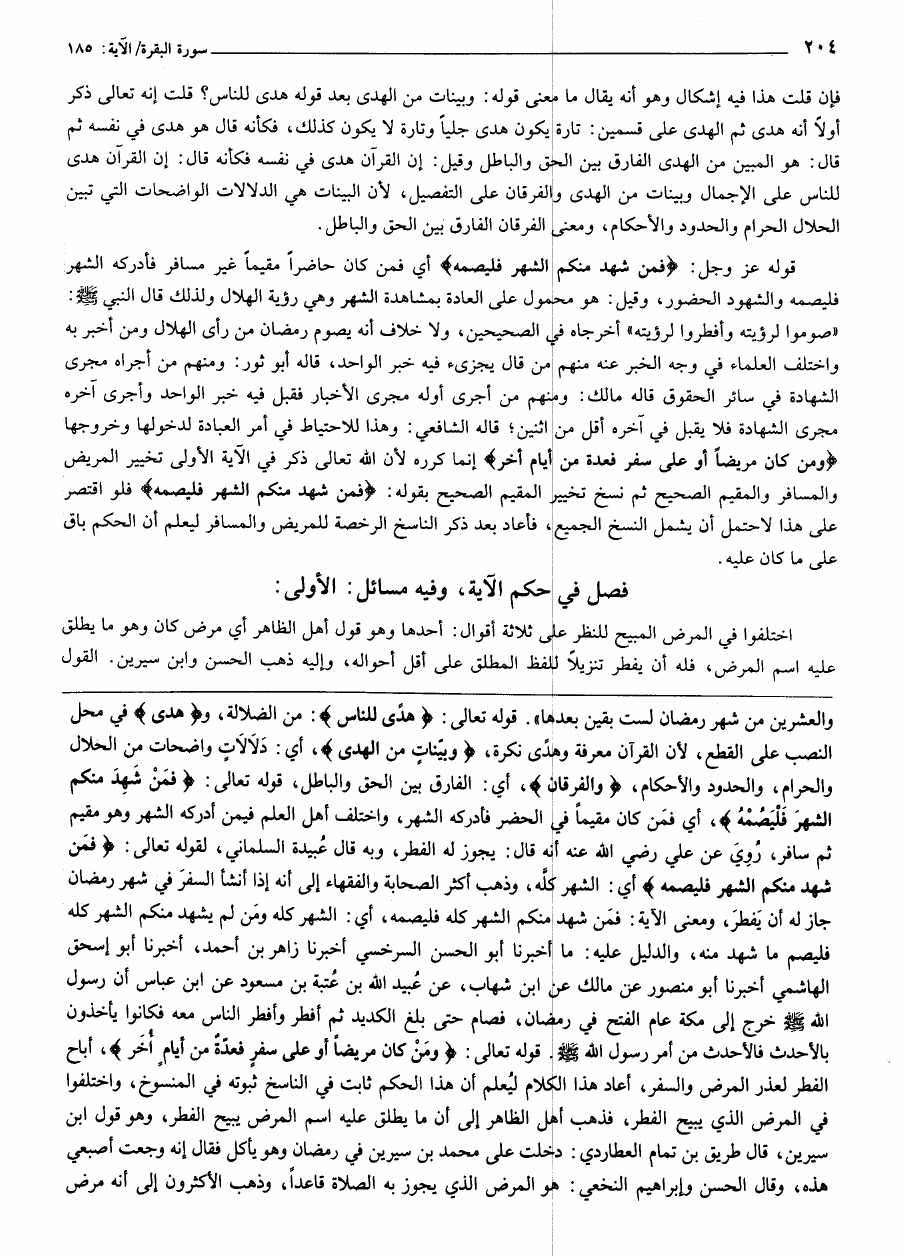 ٢٠٤ سورة البقرة/ الآية: ١٨٥
فإن قلت هذا فيه إشكال وهو أنه يقال ما معنى قوله: وبينات من الهدى بعد قوله هدى للناس؟ قلت إنه تعالى ذكر
أولاً أنه هدى ثم الهدى على قسمين: تارة يكون هدى جلياً وتارة لا يكون كذلك، فكأنه قال هو هدى في نفسه ثم
قال: هو المبين من الهدى الفارق بين الحق والباطل وقيل: إن القرآن هدى في نفسه فكأنه قال: إن القرآن هدى
للناس على الإجمال وبينات من الهدى والفرقان على التفصيل، لأن البينات هي الدلالات الواضحات التي تبين
الحلال الحرام والحدود والأحكام، ومعنى الفرقان الفارق بين الحق والباطل.
قوله عز وجل: ﴿فمن شهد منكم الشهر فليصمه﴾ أي فمن كان حاضراً مقيماً غير مسافر فأدركه الشهر
فليصمه والشهود الحضور، وقيل: هو محمول على العادة بمشاهدة الشهر وهي رؤية الهلال ولذلك قال النبي ﷺ:
«صوموا لرؤيته وأفطروا لرؤيته» أخرجاه في الصحيحين، ولا خلاف أنه يصوم رمضان من رأى الهلال ومن أخبر به
واختلف العلماء في وجه الخبر عنه منهم من قال يجزىء فيه خبر الواحد، قاله أبو ثور: ومنهم من أجراه مجرى
الشهادة في سائر الحقوق قاله مالك: ومنهم من أجرى أوله مجرى الأخبار فقبل فيه خبر الواحد وأجرى آخره
مجرى الشهادة فلا يقبل في آخره أقل من اثنين؛ قاله الشافعي: وهذا للاحتياط في أمر العبادة لدخولها وخروجها
﴿ومن كان مريضاً أو على سفر فعدة من أيام أخر﴾ إنما كرره لأن الله تعالى ذكر في الآية الأولى تخيير المريض
والمسافر والمقيم الصحيح ثم نسخ تخيير المقيم الصحيح بقوله: ﴿فمن شهد منكم الشهر فليصمه﴾ فلو اقتصر
على هذا لاحتمل أن يشمل النسخ الجميع، فأعاد بعد ذكر الناسخ الرخصة للمريض والمسافر ليعلم أن الحكم باق
على ما كان عليه.
فصل في حكم الآية، وفيه مسائل: الأولى:
اختلفوا في المرض المبيح للنظر على ثلاثة أقوال: أحدها وهو قول أهل الظاهر أي مرض كان وهو ما يطلق
عليه اسم المرض، فله أن يفطر تنزيلاً للفظ المطلق على أقل أحواله، وإليه ذهب الحسن وابن سيرين. القول
والعشرين من شهر رمضان لست بقين بعدها». قوله تعالى: ﴿ هدًى للناس ﴾: من الضلالة، و﴿ هدى ﴾ في محل
النصب على القطع، لأن القرآن معرفة وهدًى نكرة، ﴿ وبيّناتٍ من الهدى ﴾، أي: دَلَالَاتٍ واضحات من الحلال
والحرام، والحدود والأحكام، ﴿ والفرقان ﴾، أي: الفارق بين الحق والباطل، قوله تعالى: ﴿ فمَنْ شَهِدَ منكم
الشهرَ فَلْيَصُمْهُ ﴾، أي فمَن كان مقيماً في الحضر فأدركه الشهر، واختلف أهل العلم فيمن أدركه الشهر وهو مقيم
ثم سافر، رُوِيَ عن علي رضي الله عنه أنه قال: يجوز له الفطر، وبه قال عُبيدة السلماني، لقوله تعالى: ﴿ فمَن
شهد منكم الشهر فليصمه ﴾ أي: الشهر كلَّه، وذهب أكثر الصحابة والفقهاء إلى أنه إذا أنشأ السفرَ في شهر رمضان
جاز له أن يَفطرَ، ومعنى الآية: فمَن شهد منكم الشهر كله فليصمه، أي: الشهر كله ومَن لم يشهد منكم الشهر كله
فليصم ما شهد منه، والدليل عليه: ما أخبرنا أبو الحسن السرخسي أخبرنا زاهر بن أحمد، أخبرنا أبو إسحق
الهاشمي أخبرنا أبو منصور عن مالك عن ابن شهاب، عن عُبيد الله بن عُتبة بن مسعود عن ابن عباس أن رسول
الله ﷺ خرج إلى مكة عام الفتح في رمضان، فصام حتى بلغ الكديد ثم أفطر وأفطر الناس معه فكانوا يأخذون
بالأحدث فالأحدث من أمر رسول الله ﷺ. قوله تعالى: ﴿ ومَنْ كان مريضاً أو على سفرٍ فعدّةٌ من أيامٍ أُخَر ﴾، أباح
الفطر لعذر المرض والسفر، أعاد هذا الكلام ليُعلم أن هذا الحكم ثابت في الناسخ ثبوته في المنسوخ، واختلفوا
في المرض الذي يبيح الفطر، فذهب أهل الظاهر إلى أن ما يطلق عليه اسم المرض يبيح الفطر، وهو قول ابن
سيرين، قال طريق بن تمام العطاردي: دخلت على محمد بن سيرين في رمضان وهو يأكل فقال إنه وجعت أصبعي
هذه، وقال الحسن وإبراهيم النخعي: هو المرض الذي يجوز به الصلاة قاعداً، وذهب الأكثرون إلى أنه مرض